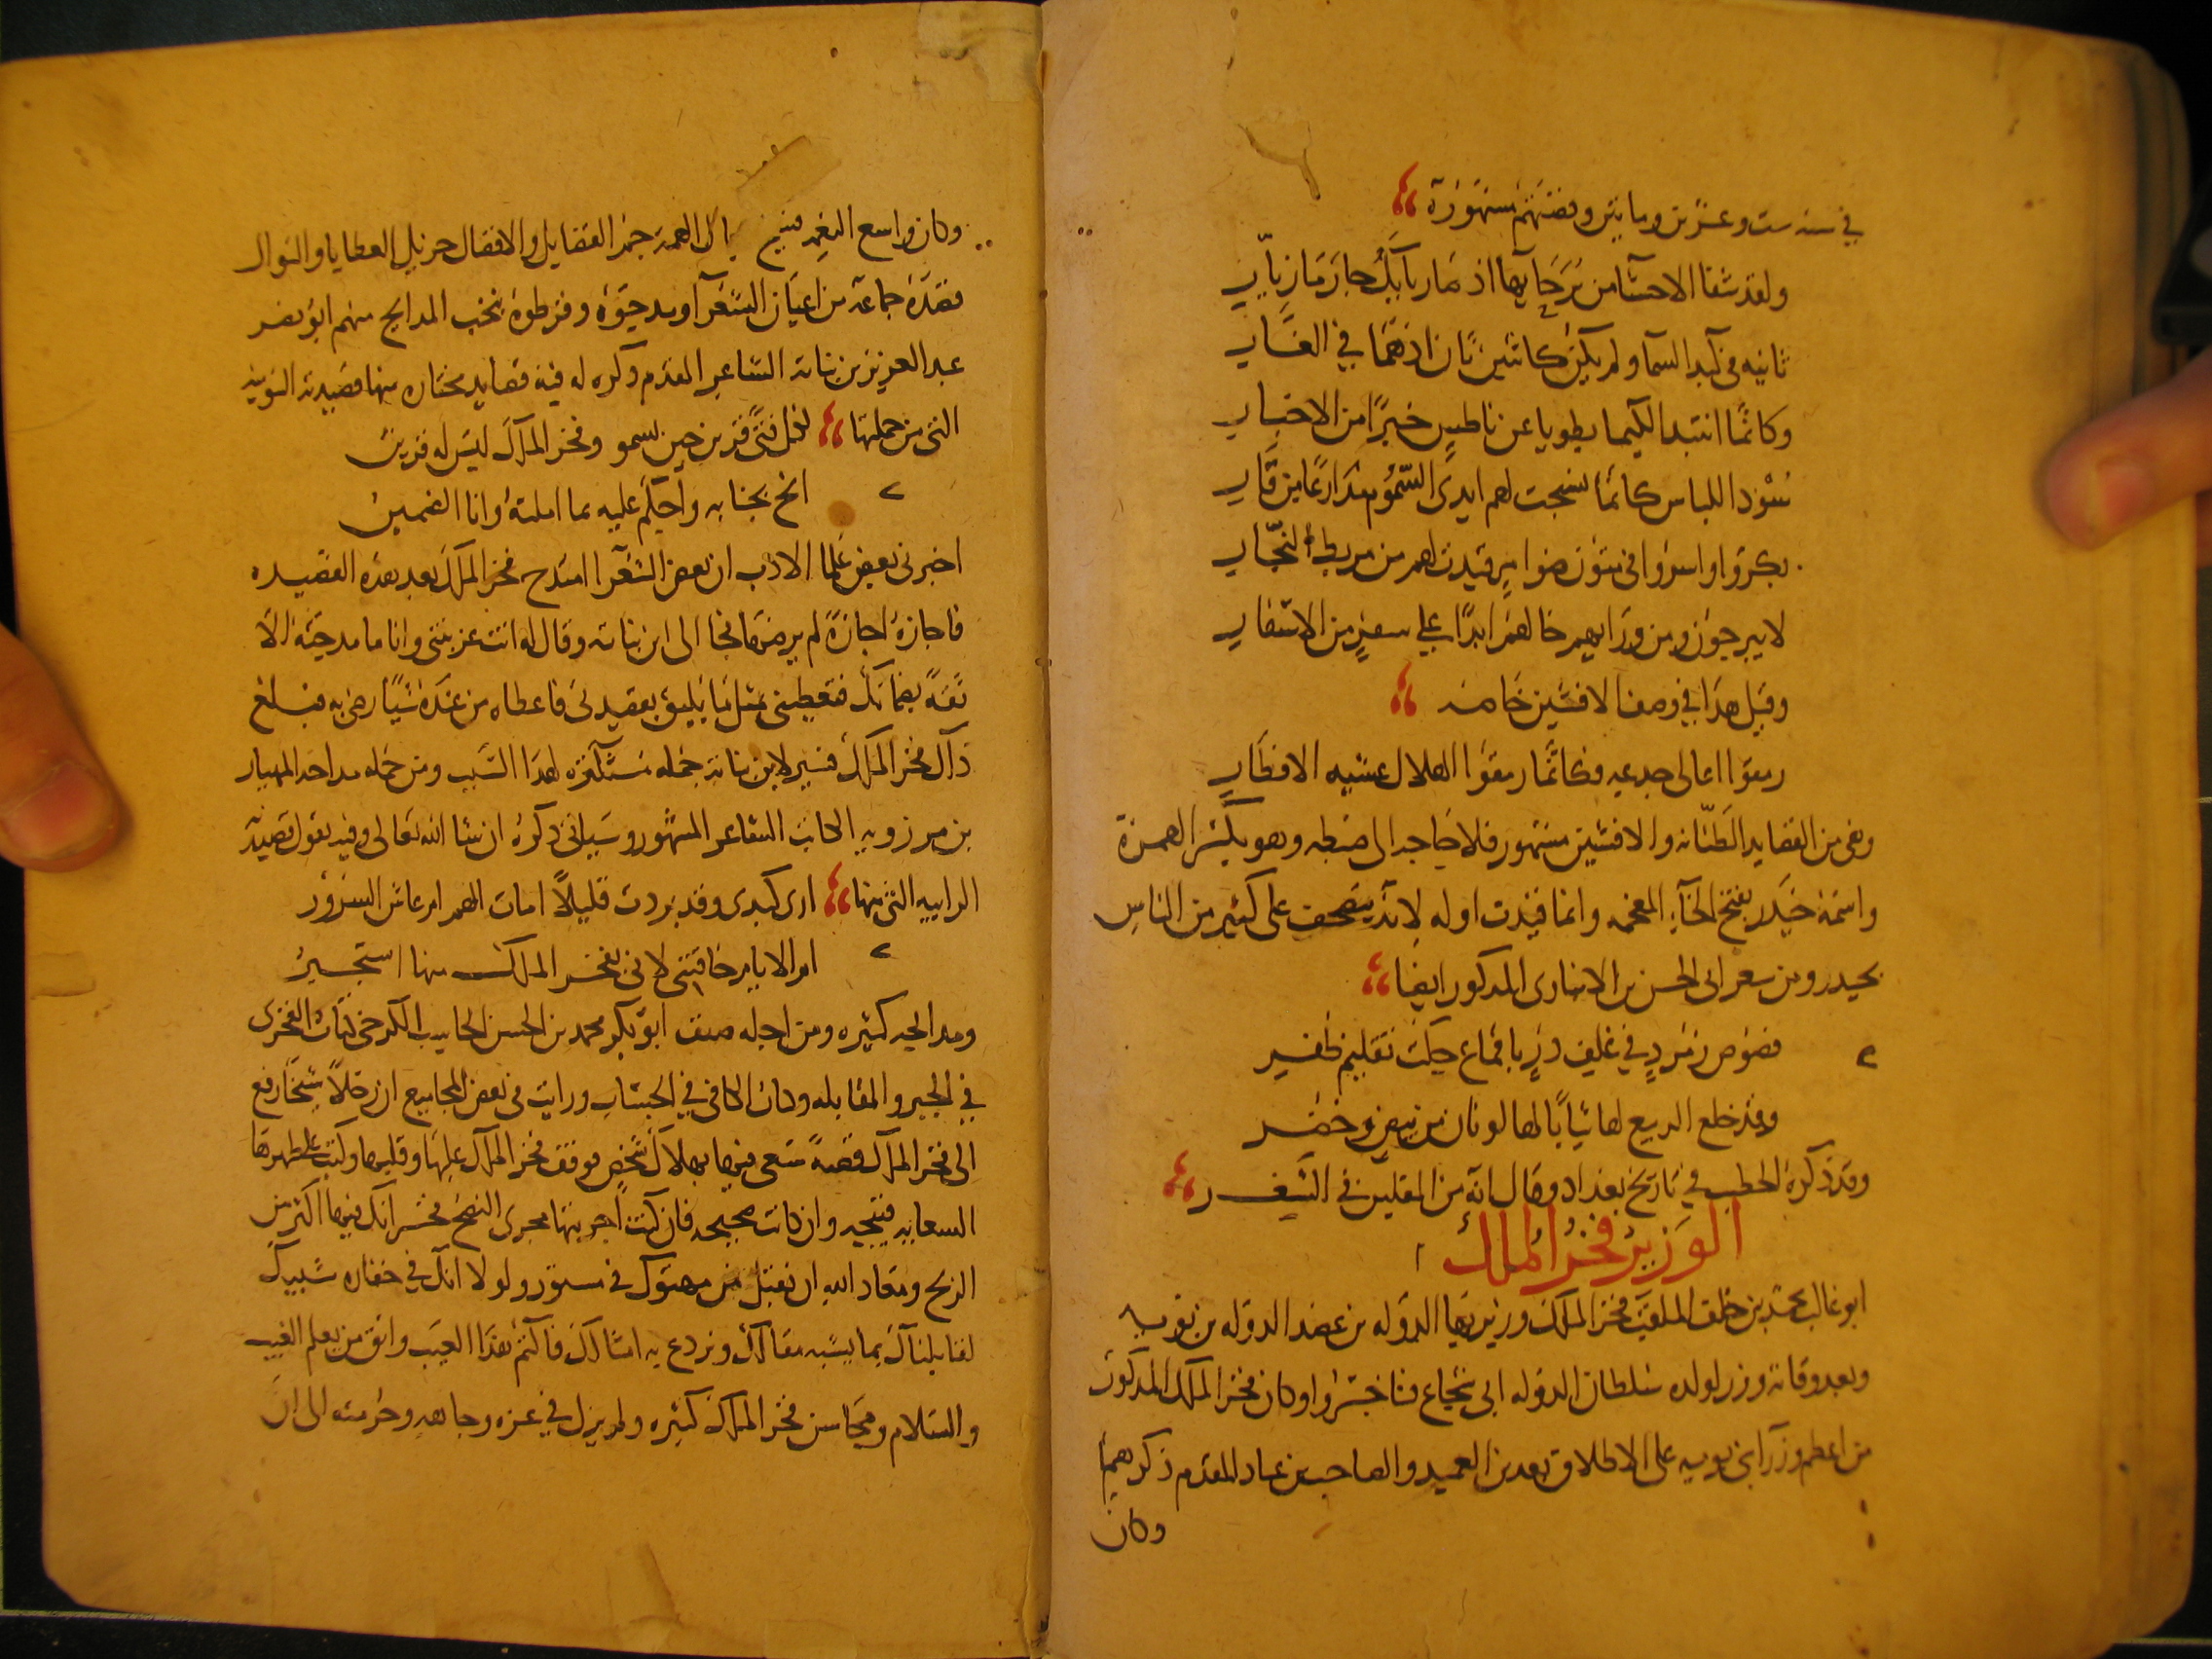 في سنه ست وعشرين ومايتين وقضيتهم مشهورة
ولقد شفا الاحشا من برحايها اذ صار بابك جار مازيار
ثانيه في كبد السما ولم يكن كاثنين ثان اذ هما في الغار
وكانما انتبدا لكيما يطويا عن ناطس خبرا من الاخبار
سود اللباس كانما نسجت لهم ايدي السموم مدارعا من قار
بكروا واسروا في متون ضوامر قيدت لهم من مربط النجار
لا يبرحون ومن وراهم خالهم ابدا على سفر من الاسفار
وقبل هذا في وصف الافشين خاصه
رمقوا اعالي جدعه فكانما رمقوا الهلال عشيه الافطار
وهي من القصايد الطنانه والافشين مشهور فلا حاجه الى ضبطه وهو بكسر الهمزة
واسمه خيدر بفتح الخاء المعجمه وانما قيدت اوله لانه يتصحف على كثير من الناس
بحيدر ومن شعر ابي الحسن بن الانباري المذكور ايضا
فصوص زمرد في غلف در باقماع حكت تقليم ظفر
وقد خلع الربيع لها ثيابا لها لونان من بيض وخضر
وقد ذكره الخطيب في تاريخ بغداد وقال انه من المقلين في الشعر
الوزير فخر الملك
ابو غالب محمد بن خلف الملقب فخر الملك وزير بها الدوله بن عضد الدوله بن بويه
وبعد وفاته وزر لولده سلطان الدوله ابي شجاع فناخسروا وكان فخر الملك المذكور
من اعظم وزرا بني بويه على الاطلاق بعد بن العميد والصاحب بن عباد المقدم ذكرهما
وكان
وكان واسع النعمه فسيح مجال الهمه جم الفضايل والافضال جزيل العطايا والنوال
قصده جماعة من اعيان الشعرا ومدحوه وقرظوه بنخب المدايح منهم ابو نصر
عبد العزيز بن نباته الشاعر المقدم ذكره له فيه قصايد مختاره منها قصيدته النونيه
التي من جملتها لكل فتى قرين حين يسمو وفخر الملك ليس له قرين
انخ بجنابه واحكم عليه بما املته وانا الضمين
اخبرني بعض علما الادب ان بعض الشعرا امتدح فخر الملك بعد هذه القصيده
فاجازه اجازة لم يرضها فجا الى ابن نباته وقال له انت غررتني وانا ما مدحته الا
ثقة بضمانك فتعطيني مثل ما يليق بقصيدتي فاعطاه من عنده شيا رضي به فبلغ
ذلك فخر الملك فسير لابن نباته جمله مستكثره لهذا السبب ومن جمله مداحه المهيار
بن مرزويه الكاتب الشاعر المشهور وسياتي ذكره ان شا الله تعالى وفيه يقول قصيدته
الراييه التي منها ارى كبدي وقد بردت قليلا امات الهم ام عاش السرور
ام الايام خافتني لاني بفخر الملك منها استجير
ومدايحه كثيره ومن اجله صنف ابو بكر محمد بن الحسن الحاسب الكرخي كتاب الفخري
في الجبر والمقابله وكتاب الكافي في الحساب ورايت في بعض المجاميع ان رجلا شيخا رفع
الى فخر الملك قصة سعى فيها بهلاك شخص فوقف فخر الملك عليها وقلبها وكتب على ظهرها
السعايه قبيحه وان كانت صحيحه فان كنت اجريتها مجرى النصح فخسرانك فيها اكثر من
الربح ومعاد الله ان نقبل من مهتوك في مستور ولولا انك في خفاره شيبك
لقابلناك بما يشبه مقالك ونردع به امثالك فاكتم هذا العيب واتق من يعلم الغيب
والسلام ومحاسن فخر الملك كثيره ولم يزل في عزه وجاهه وحرمته الى ان